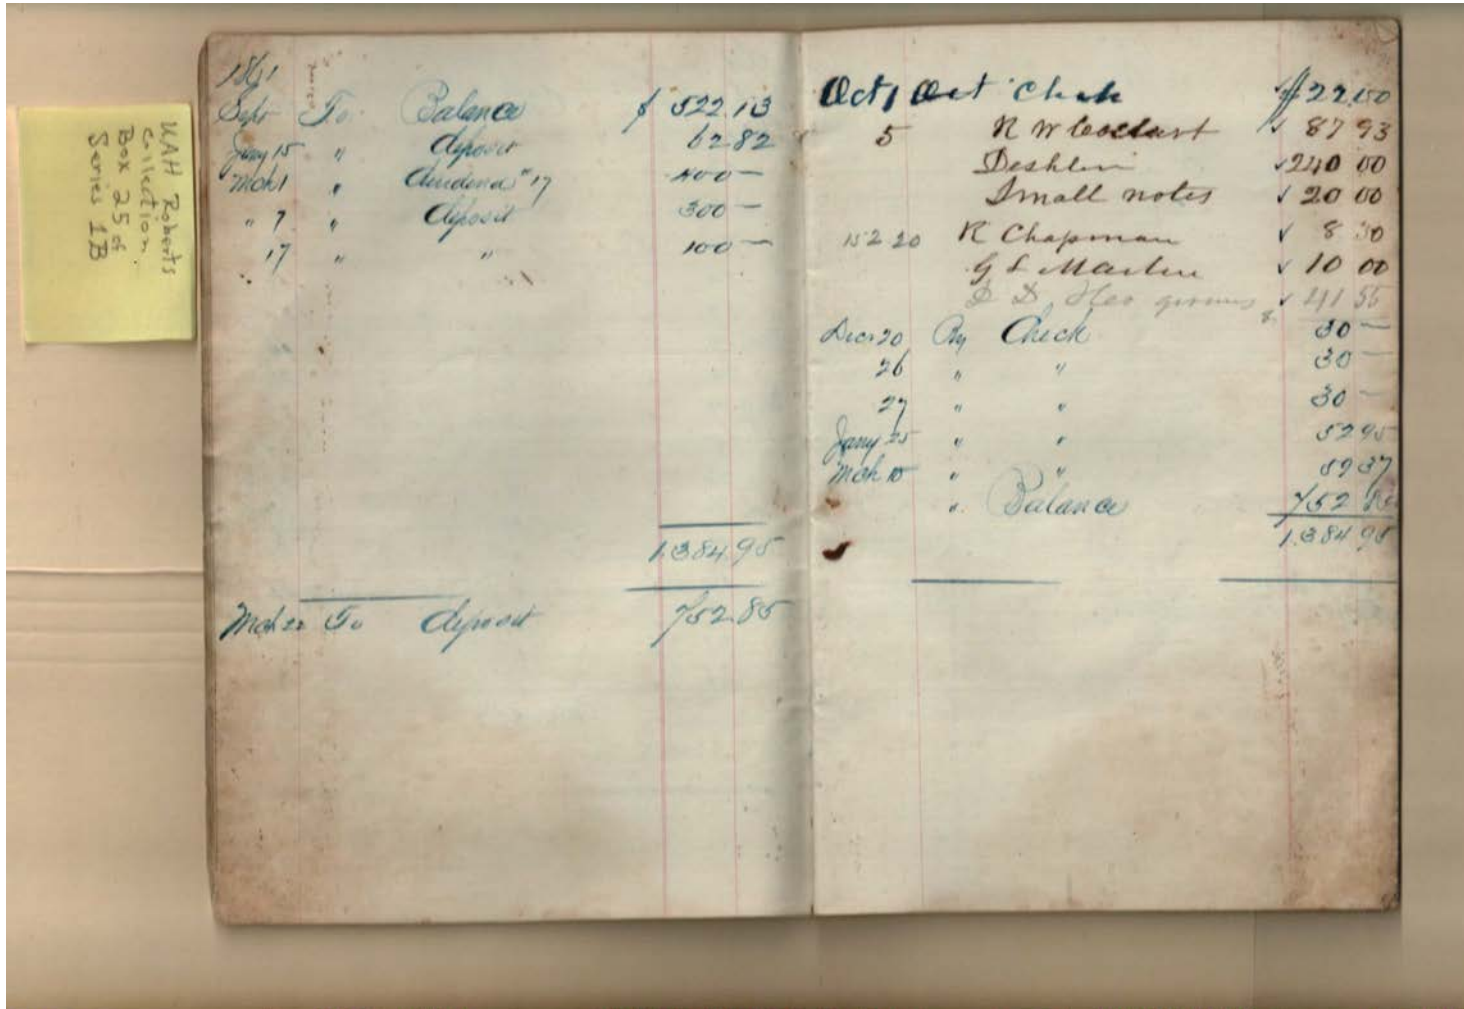 UAH Roberts
collection
Box 25 of
Series 1B
1861
Sept To Balance $ 522.13
Jany 15 " deposit 62 82
Mch 1 " " 17 400 —
" 7 " deposit 300 —
17 " " 100 —
1.384.95
Mch 22 To deposit 752.85
Oct 1 Oct Check $22.00
5 R W 87 93
240 00
Small notes 20 00
20 R Chapman 8 30
G L Martin 10 00
D D 41 55
Decr 20 By Check 30 —
26 " " 30 —
27 " " 30 —
Jany 25 " " 52 95
Mch 10 " " 89 37
" Balance 752 85
1.384 95